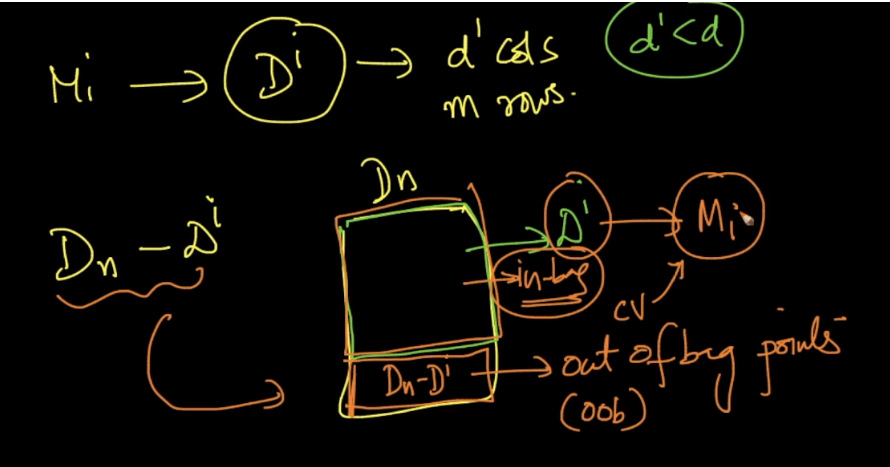 Mi → Dⁱ → d' cols d'<d
m rows.
Dn
Dn - Dⁱ
Dⁱ → Mi
in-bag
CV
Dn-Dⁱ → out of bag points
(oob)